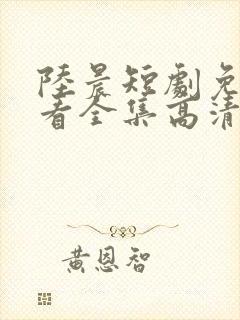 陸晨短劇免
看全集高清
黃恩智